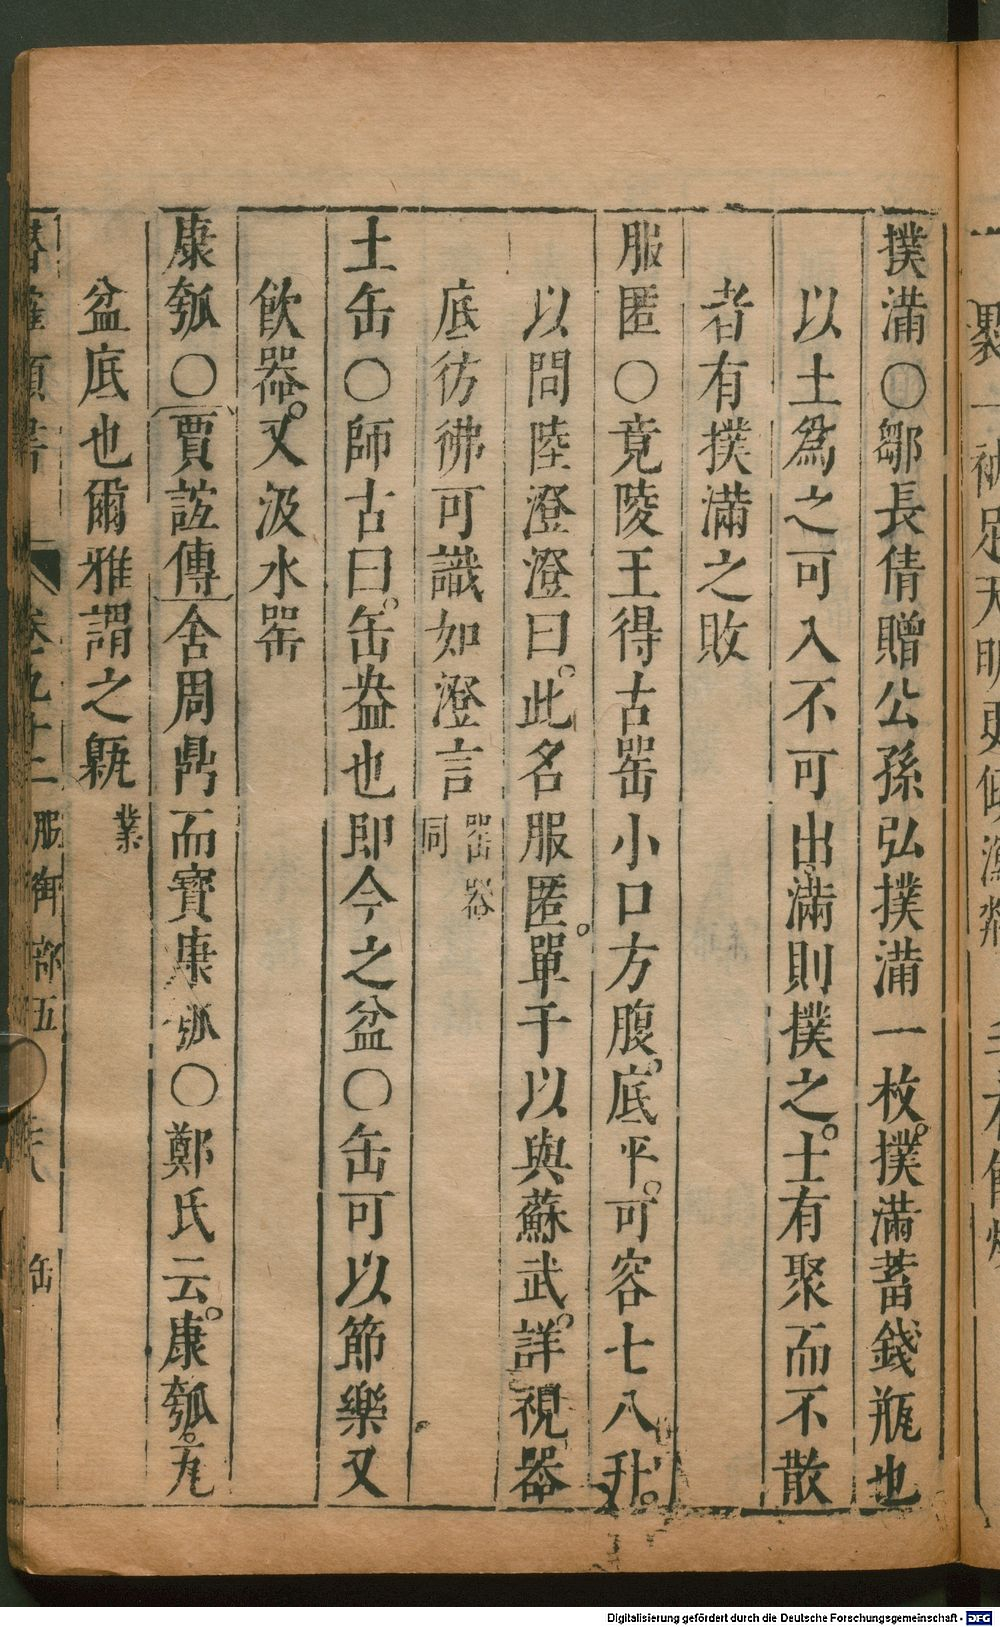 撲滿〇鄒長倩贈公孫弘撲滿一枚。撲滿蓄錢瓶也
以土爲之可入不可出。滿則撲之。士有聚而不散
者有撲滿之敗
服匿〇竟陵王得古噐小口方腹。底平。可容七八升。
以問陸澄澄曰。此名服匿。單于以與蘇武。詳視器
底彷彿可識如澄言 噐器同
土缶〇師古曰。缶盎也即今之盆〇缶可以節樂又
飲器。又汲水噐
康瓠〇賈誼傳舍周鼎而寶康瓠〇鄭氏云。康瓠。瓦
盆底也爾雅謂之甈 業
卷九十二 服御部五 缶
Digitalisierung gefördert durch die Deutsche Forschungsgemeinschaft - DFG